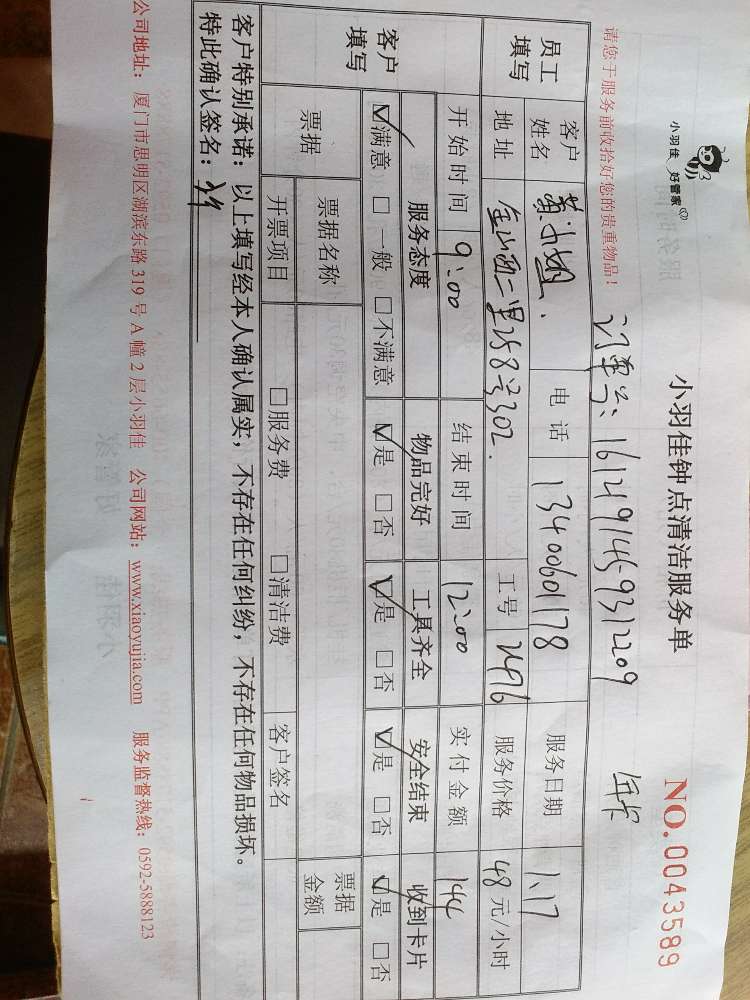 小羽佳 好管家
小羽佳钟点清洁服务单
NO.0043589
请您于服务前收拾好您的贵重物品！
订单号：1612491459312209
年卡
员工填写
客户姓名 黄小姐. 电话 13400601178 服务日期 1.17
地址 金山西二里258号302. 工号 2496 服务价格 48 元/小时
客户填写
开始时间 9:00 结束时间 12:00 实付金额 144
服务态度 物品完好 工具齐全 安全结束 收到卡片
☑满意 □一般 □不满意 ☑是 □否 ☑是 □否 ☑是 □否 ☑是 □否
票据 票据名称 票据金额
开票项目 □服务费 □清洁费 客户签名
客户特别承诺：以上填写经本人确认属实，不存在任何纠纷，不存在任何物品损坏。
特此确认签名：
公司地址：厦门市思明区湖滨东路 319 号 A 幢 2 层小羽佳 公司网站：www.xiaoyujia.com 服务监督热线：0592-5888123